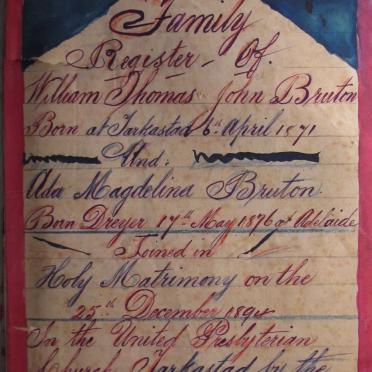 Family
Register Of.
William Thomas John Bruton
Born at Tarkastad 6th April 1871
And:
Ada Magdelina Bruton
Born Dreyer 17th May 1876 at Adelaide
Joined in
Holy Matrimony on the
25th December 1894
In the United Presbyterian
Church Tarkastad by the